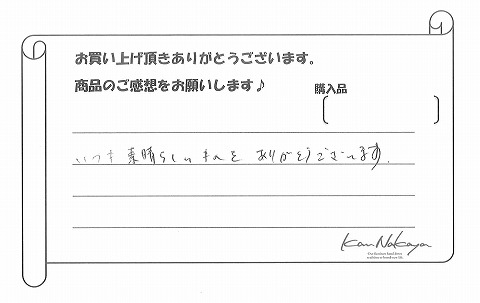 お買い上げ頂きありがとうございます。
商品のご感想をお願いします♪
購入品
いつも素晴らしいものを ありがとうございます。
Kan Nakaya